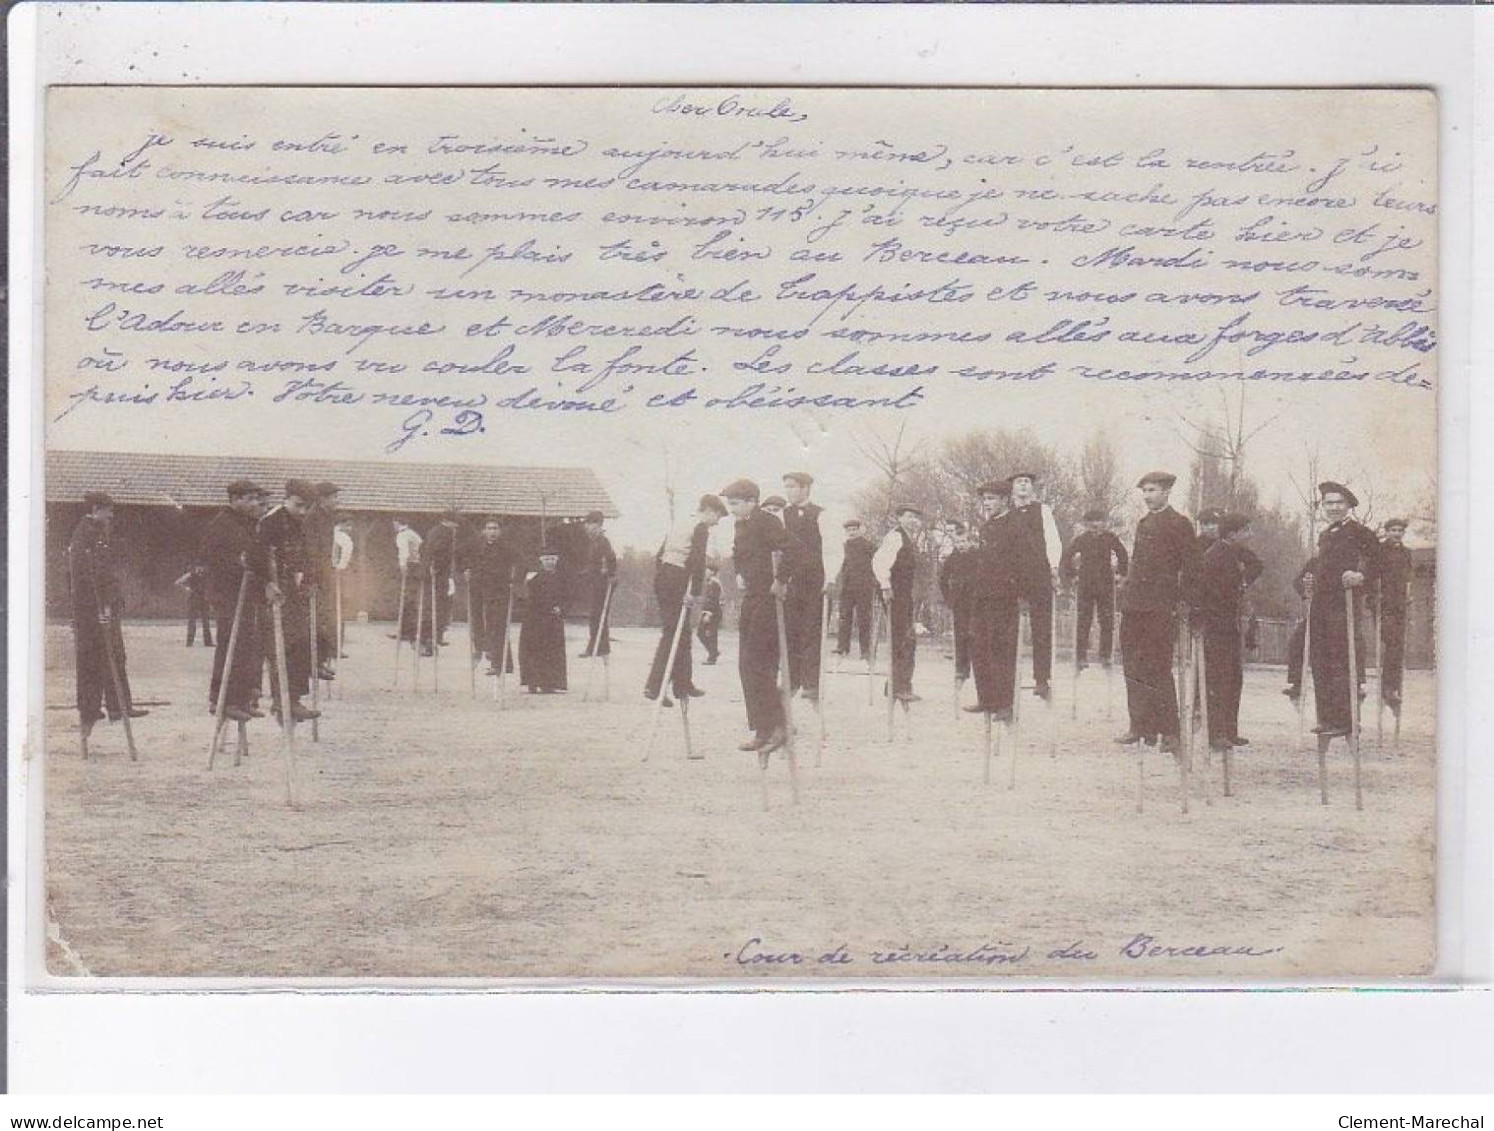 Cher Oncle,
je suis entré en troisième aujourd'hui même, car c'est la rentrée. J'ai
fait connaissance avec tous mes camarades quoique je ne sache pas encore leurs
noms à tous car nous sommes environ 115. J'ai reçu votre carte hier et je
vous remercie. je me plais très bien au Berceau. Mardi nous som=
mes allés visiter un monastère de trappistes et nous avons traversé
l'Adour en Barque et Mercredi nous sommes allés aux forges d'
où nous avons vu couler la fonte. Les classes sont recommencées de=
puis hier. Votre neveu dévoué et obéissant
G. D.
Cour de récréation du Berceau.
www.delcampe.net
Clement-Marechal